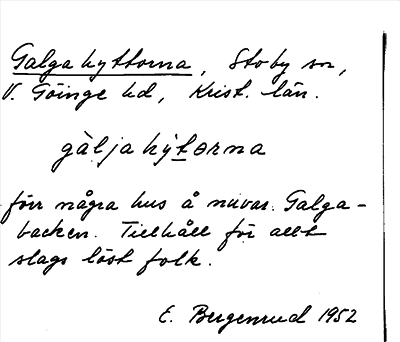 Galgahyttorna, Stoby sn,
V. Göinge hd, Krist. län.
gàljahỳtərna
förr några hus å nuvar. Galga-
backen. Tillhåll för allt
slags löst folk.
E. Bergenrud 1952